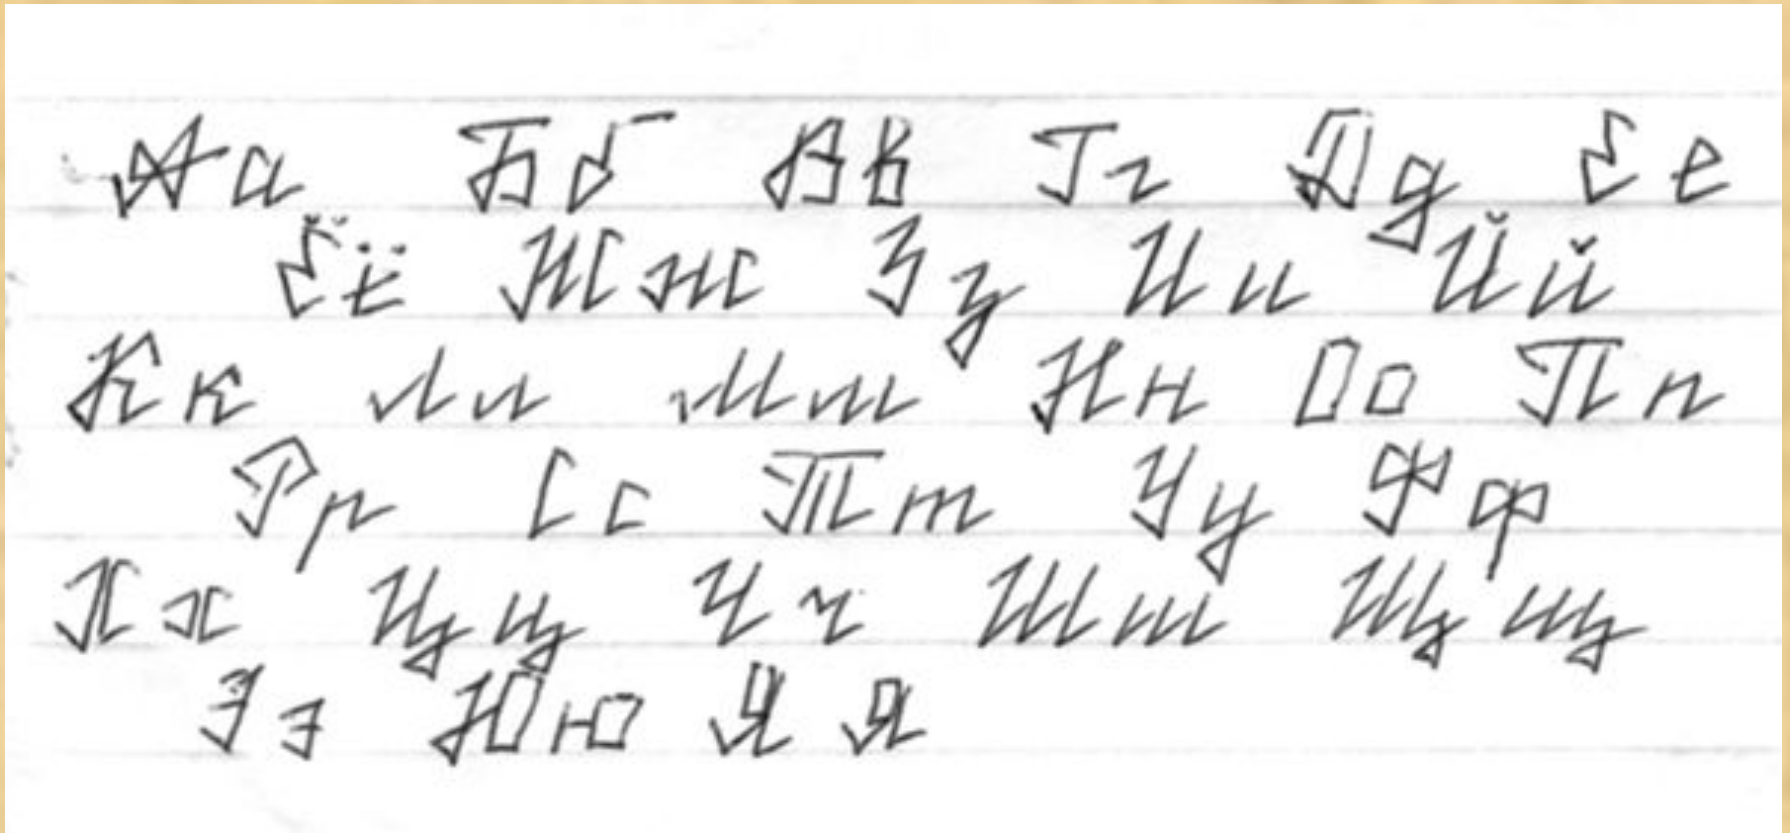 Аа Бб Вв Гг Дд Ее
Ёё Жж Зз Ии Йй
Кк Лл Мм Нн Оо Пп
Рр Сс Тт Уу Фф
Хх Цц Чч Шш Щщ
Ээ Юю Яя